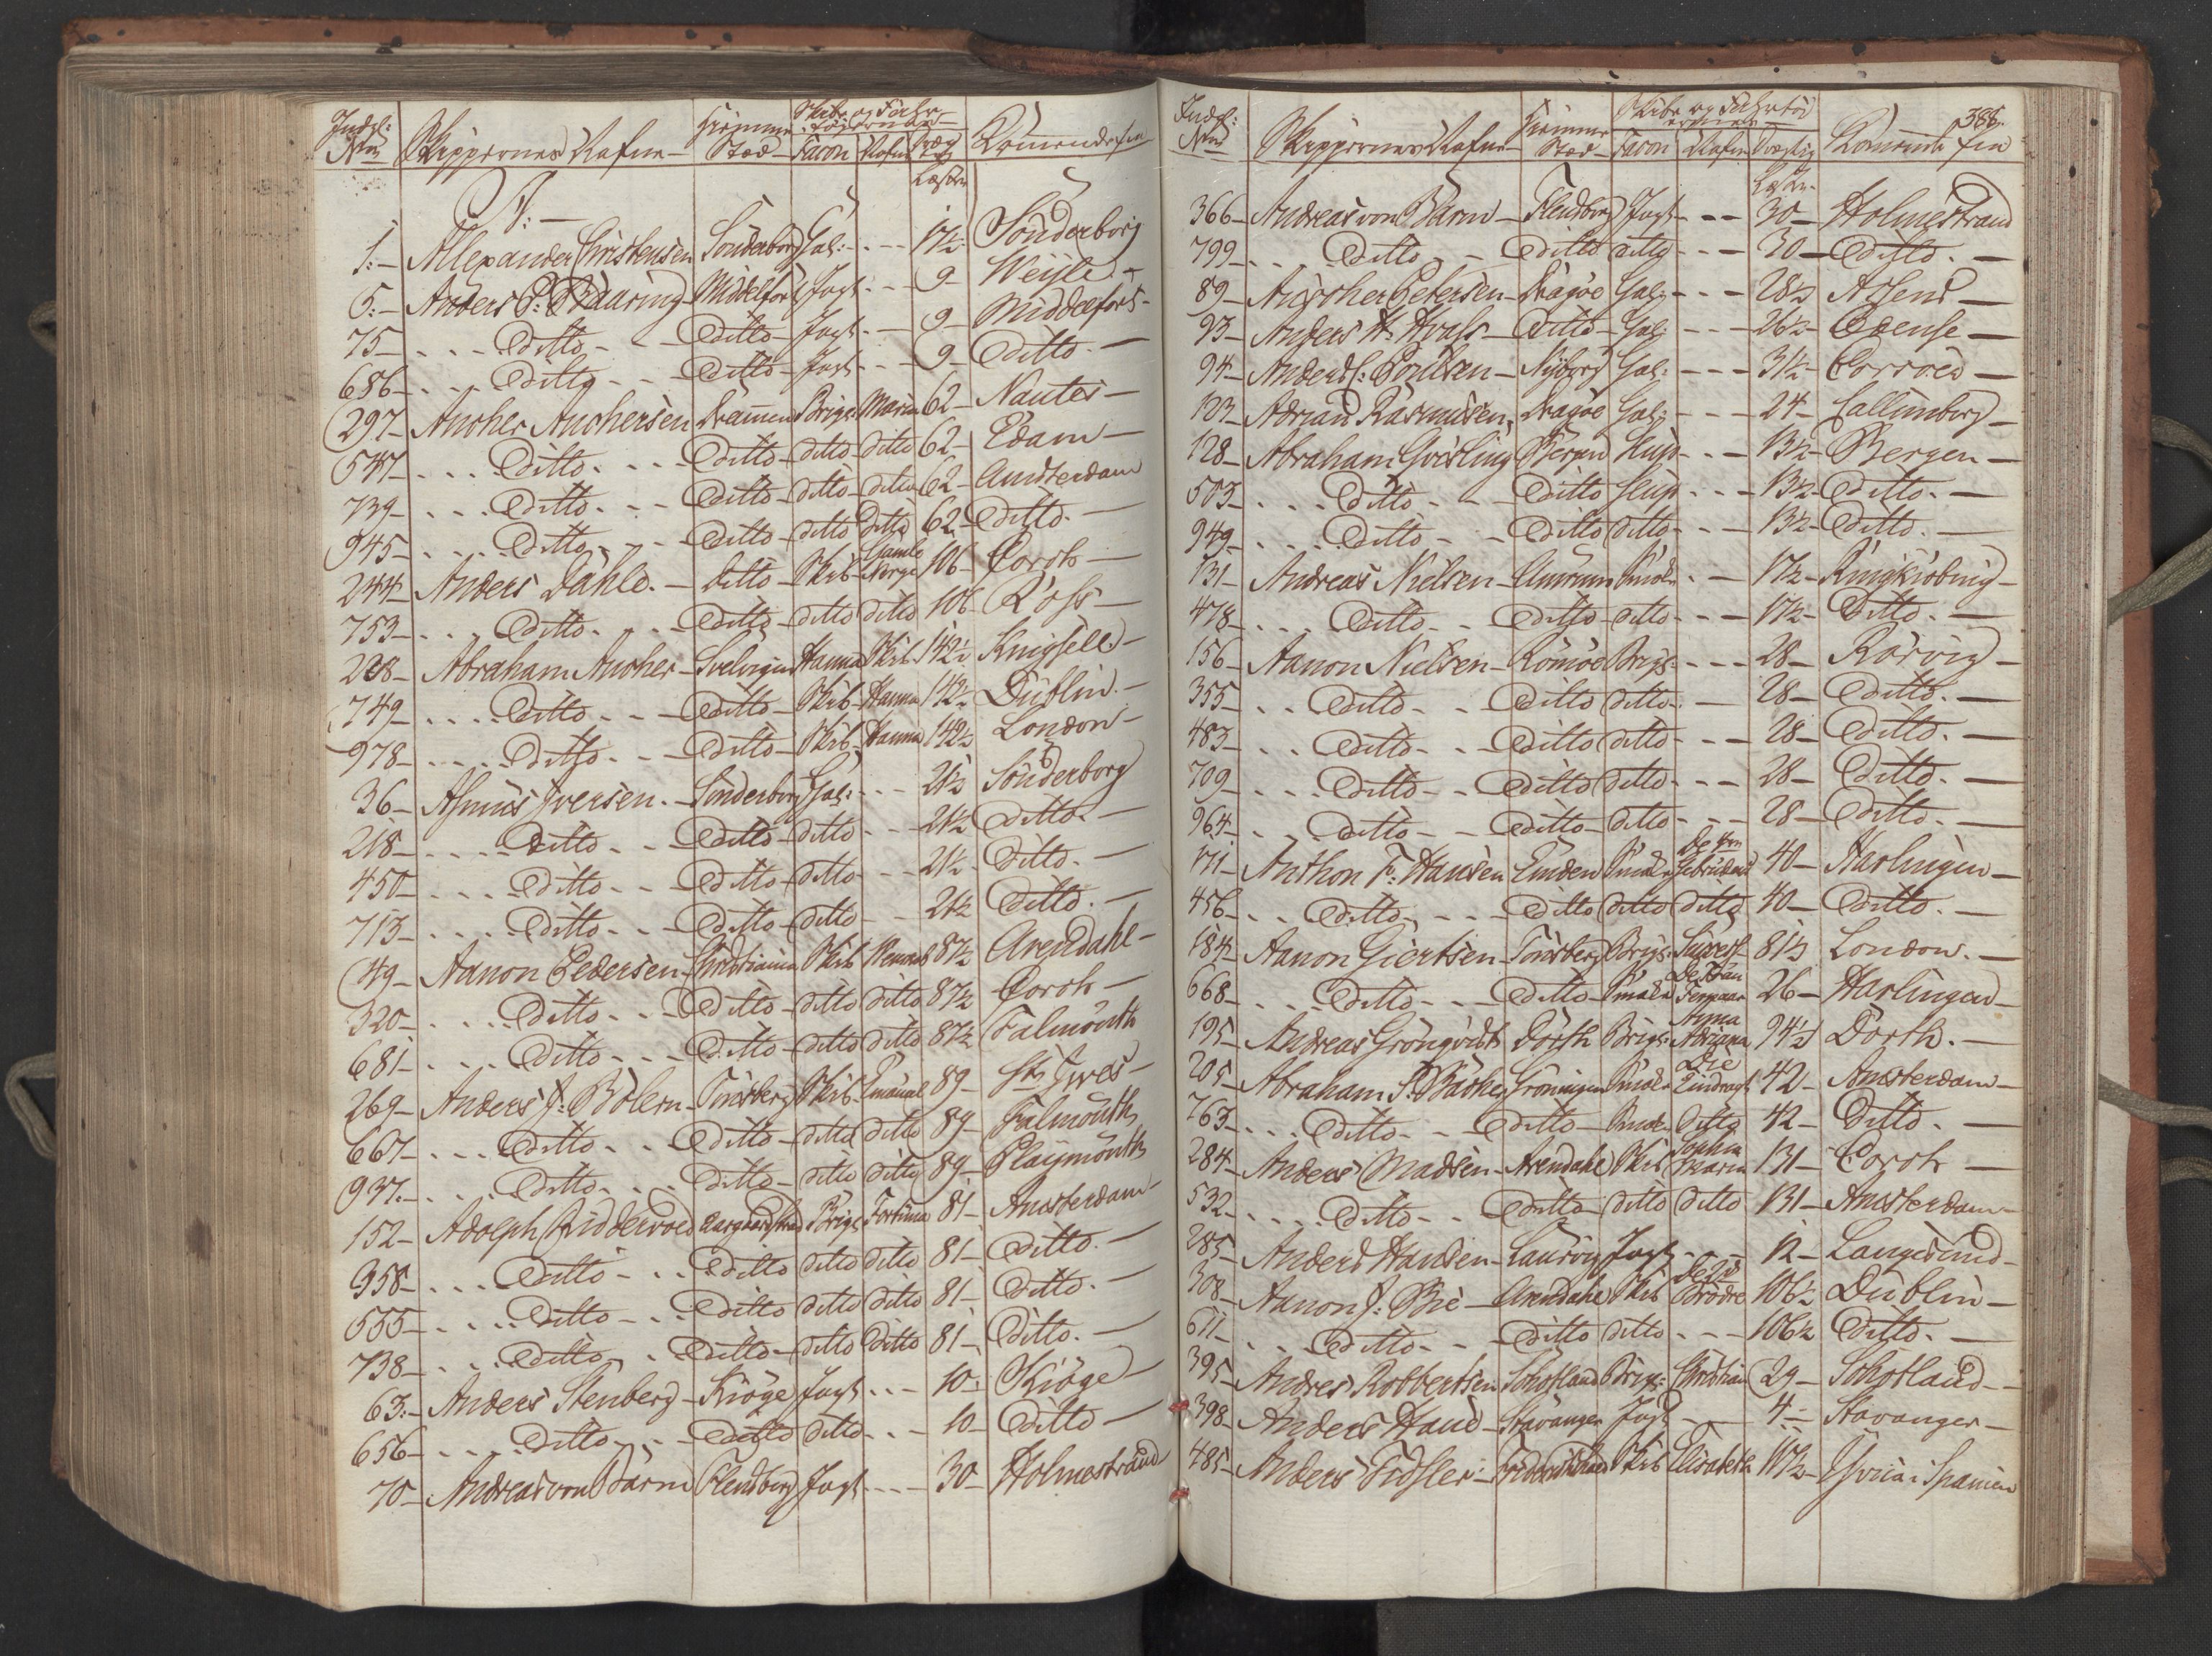 Indgl: Num | Skippernes Nafne | Hiemme Stæd | Skibs og Fahrtøiernes Facon | Nafne | Drægt: Læster | Kommende fra
A:
1:- Allexander Christensen Sonderborg Gal: - - - 17½ Sonderborg
5:- Anders P: Baaring Middelfort Jagt - - - 9 Weijle
75- - - - Ditto - - Ditto Jagt - - 9 Middelfort
686- - - - Ditto - - Ditto Jagt - - 9 Ditto
297- Ancher Anchersen Drammen Brig: Maria 62 Nantes
547- - - - Ditto - - - Ditto ditto ditto 62 Edam
739- - - - Ditto - - - Ditto ditto ditto 62 Amsterdam
945- - - - Ditto - - Ditto ditto ditto 62 Ditto
244- Anders Dahle - Ditto Skib Gamle Norge 106 Corck
753- - - Ditto - - Ditto ditto ditto 106 Ross
208- Abraham Ancher Svelvigen Hanna Skib 142½
749- - - - Ditto - - Ditto Skib Hanna 142½ Dublin
978- - - - Ditto - - Ditto Skib Hanna 142½ London
36- Asmus Iversen Sonderborg Gal: - - - 21½ Sonderborg
218- - - - Ditto - - Ditto ditto - - 21½ Ditto
450- - - - Ditto - - Ditto ditto - - 21½ Ditto
713- - - - Ditto - - Ditto ditto - - 21½ Ditto
49- Aanon Pedersen Christiania Skib 87½ Arendahl
320- - - - Ditto - - Ditto ditto ditto 87½ Corck
681- - - - Ditto - - Ditto ditto ditto 87½ Falmouth
269- Anders J: Bolern Tonsberg Skib Emanuel 89 St: Ives
667- - - - Ditto - - Ditto ditto ditto 89 Falmouth
937- - - - Ditto - - Ditto ditto ditto 89 Playmouth
152- Adolph Riddervold Brig: Fortuna 81 Amsterdam
358- - - - Ditto - - Ditto ditto ditto 81 Ditto
555- - - - Ditto - - Ditto ditto ditto 81 Ditto
738- - - - Ditto - - Ditto ditto ditto 81 Ditto
63:- Anders Stenberg Kiöge Jagt - - - 10 Kiöge
656- - - - Ditto - - Ditto ditto - - - 10 Ditto
70- Andreas von Barm Flensborg Jagt - - - 30 Holmestrand
388.
Indgl: Num | Skippernes Nafne | Hiemme Stæd | Skibs og Fahrtøiernes Facon | Nafne | Drægtig Læster | Kommende fra
366- Andreas von Barm Flensborg Jagt - - 30 Holmestrand
799- - - Ditto - - Ditto ditto - - - 30 Ditto
89- Petersen Dragöe Gal: - - - 28½ Assens
93- Anders H. Ditto Gal: - - - 26½ Odense
94- Anders Poulsen Nyborg Gal: - - - 31½ Corsoer
123- Adrian Rasmusen Dragöe Gal: - - - 24 Callunborg
128- Abraham Gvisling Bergen - - 13½ Bergen
503- - - - Ditto - - Ditto Slup - - - 13½ Ditto
949- - - - Ditto - - Ditto ditto - - 13½ Ditto
131- Andreas Nielsen Amrum Smak - - 17½ Ringkiöbing
478- - - - Ditto - - Ditto ditto - - - 17½ Ditto
156- Aanon Nielsen Römöe Brig: - - - 28 Rörvig
355- - - Ditto - - Ditto ditto - - 28 Ditto
483- - - Ditto - - Ditto ditto - - - 28 Ditto
709- - - Ditto - - Ditto ditto - - - 28 Ditto
964- - - Ditto - - Ditto ditto - - - 28 Ditto
171- Anthon F: Hansen Emden Smak De Gebruders 40 Harlingen
456- - - Ditto - - - Ditto ditto ditto 40 Ditto
184- Aanon Giertsen Tonsberg Brig: 81½ London
668- - - - Ditto - - Ditto Smak De 26 Harlingen
195- Andreas Grönqvidt Brig: Anna Adriana 94½
205- Abraham P: Groningen Smak Die Eindragt 42 Amsterdam
763- - - - Ditto - - Ditto Smak Ditto 42 Ditto
284- Anders Madsen Arendahl Skib Sophia Maria 131 Corck
532- - - - Ditto - - Ditto ditto ditto 131 Amsterdam
285- Anders Hansen Laurvig Jagt - - 12 Langesund
308- Aanon J: Bie Arendahl Skib De Brödre 106½ Dublin
671- - - Ditto - - Ditto ditto - - - 106½ Ditto
395- Andres Robbertsen Schotland Brig: Christian 29 Schotland
398- Anders Haus Stavanger Jagt - - 4 Stavanger
485- Anders Skib Elisabeth 117½ Yvica i Spanien